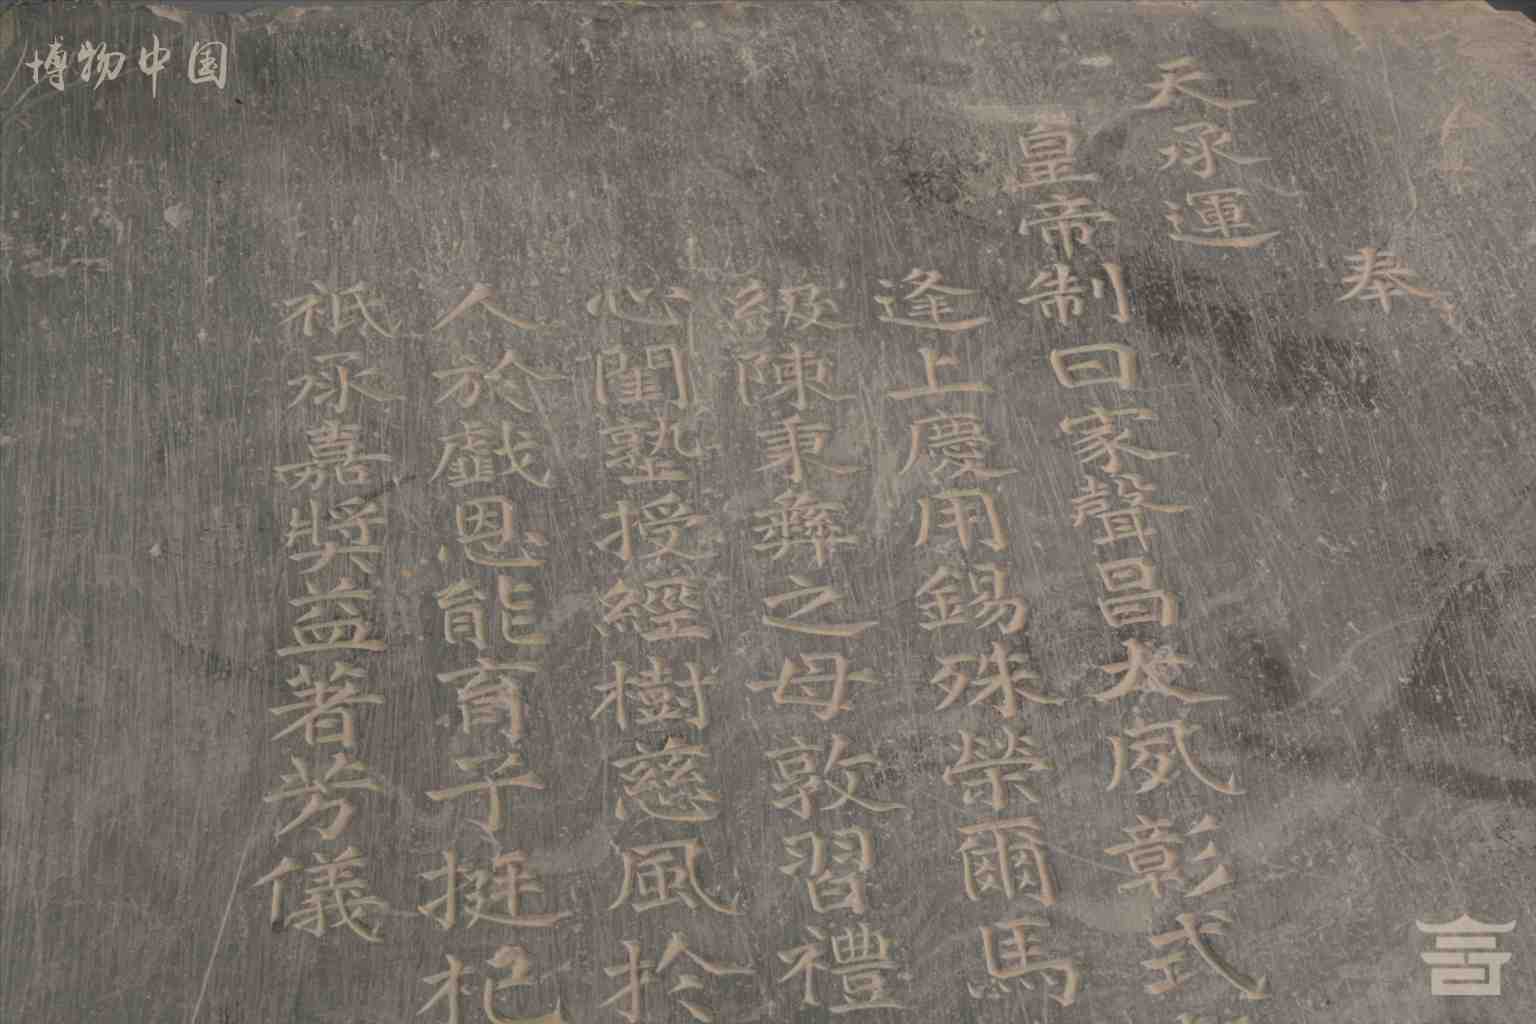 博物中国
奉
天承運
皇帝制曰家聲昌大威彰式
逢上慶用錫殊榮爾馬
級陳秉彝之母敦習禮
心閨塾授經樹慈風於
人於戲恩能育子挺杞
祇承嘉獎益著芳儀